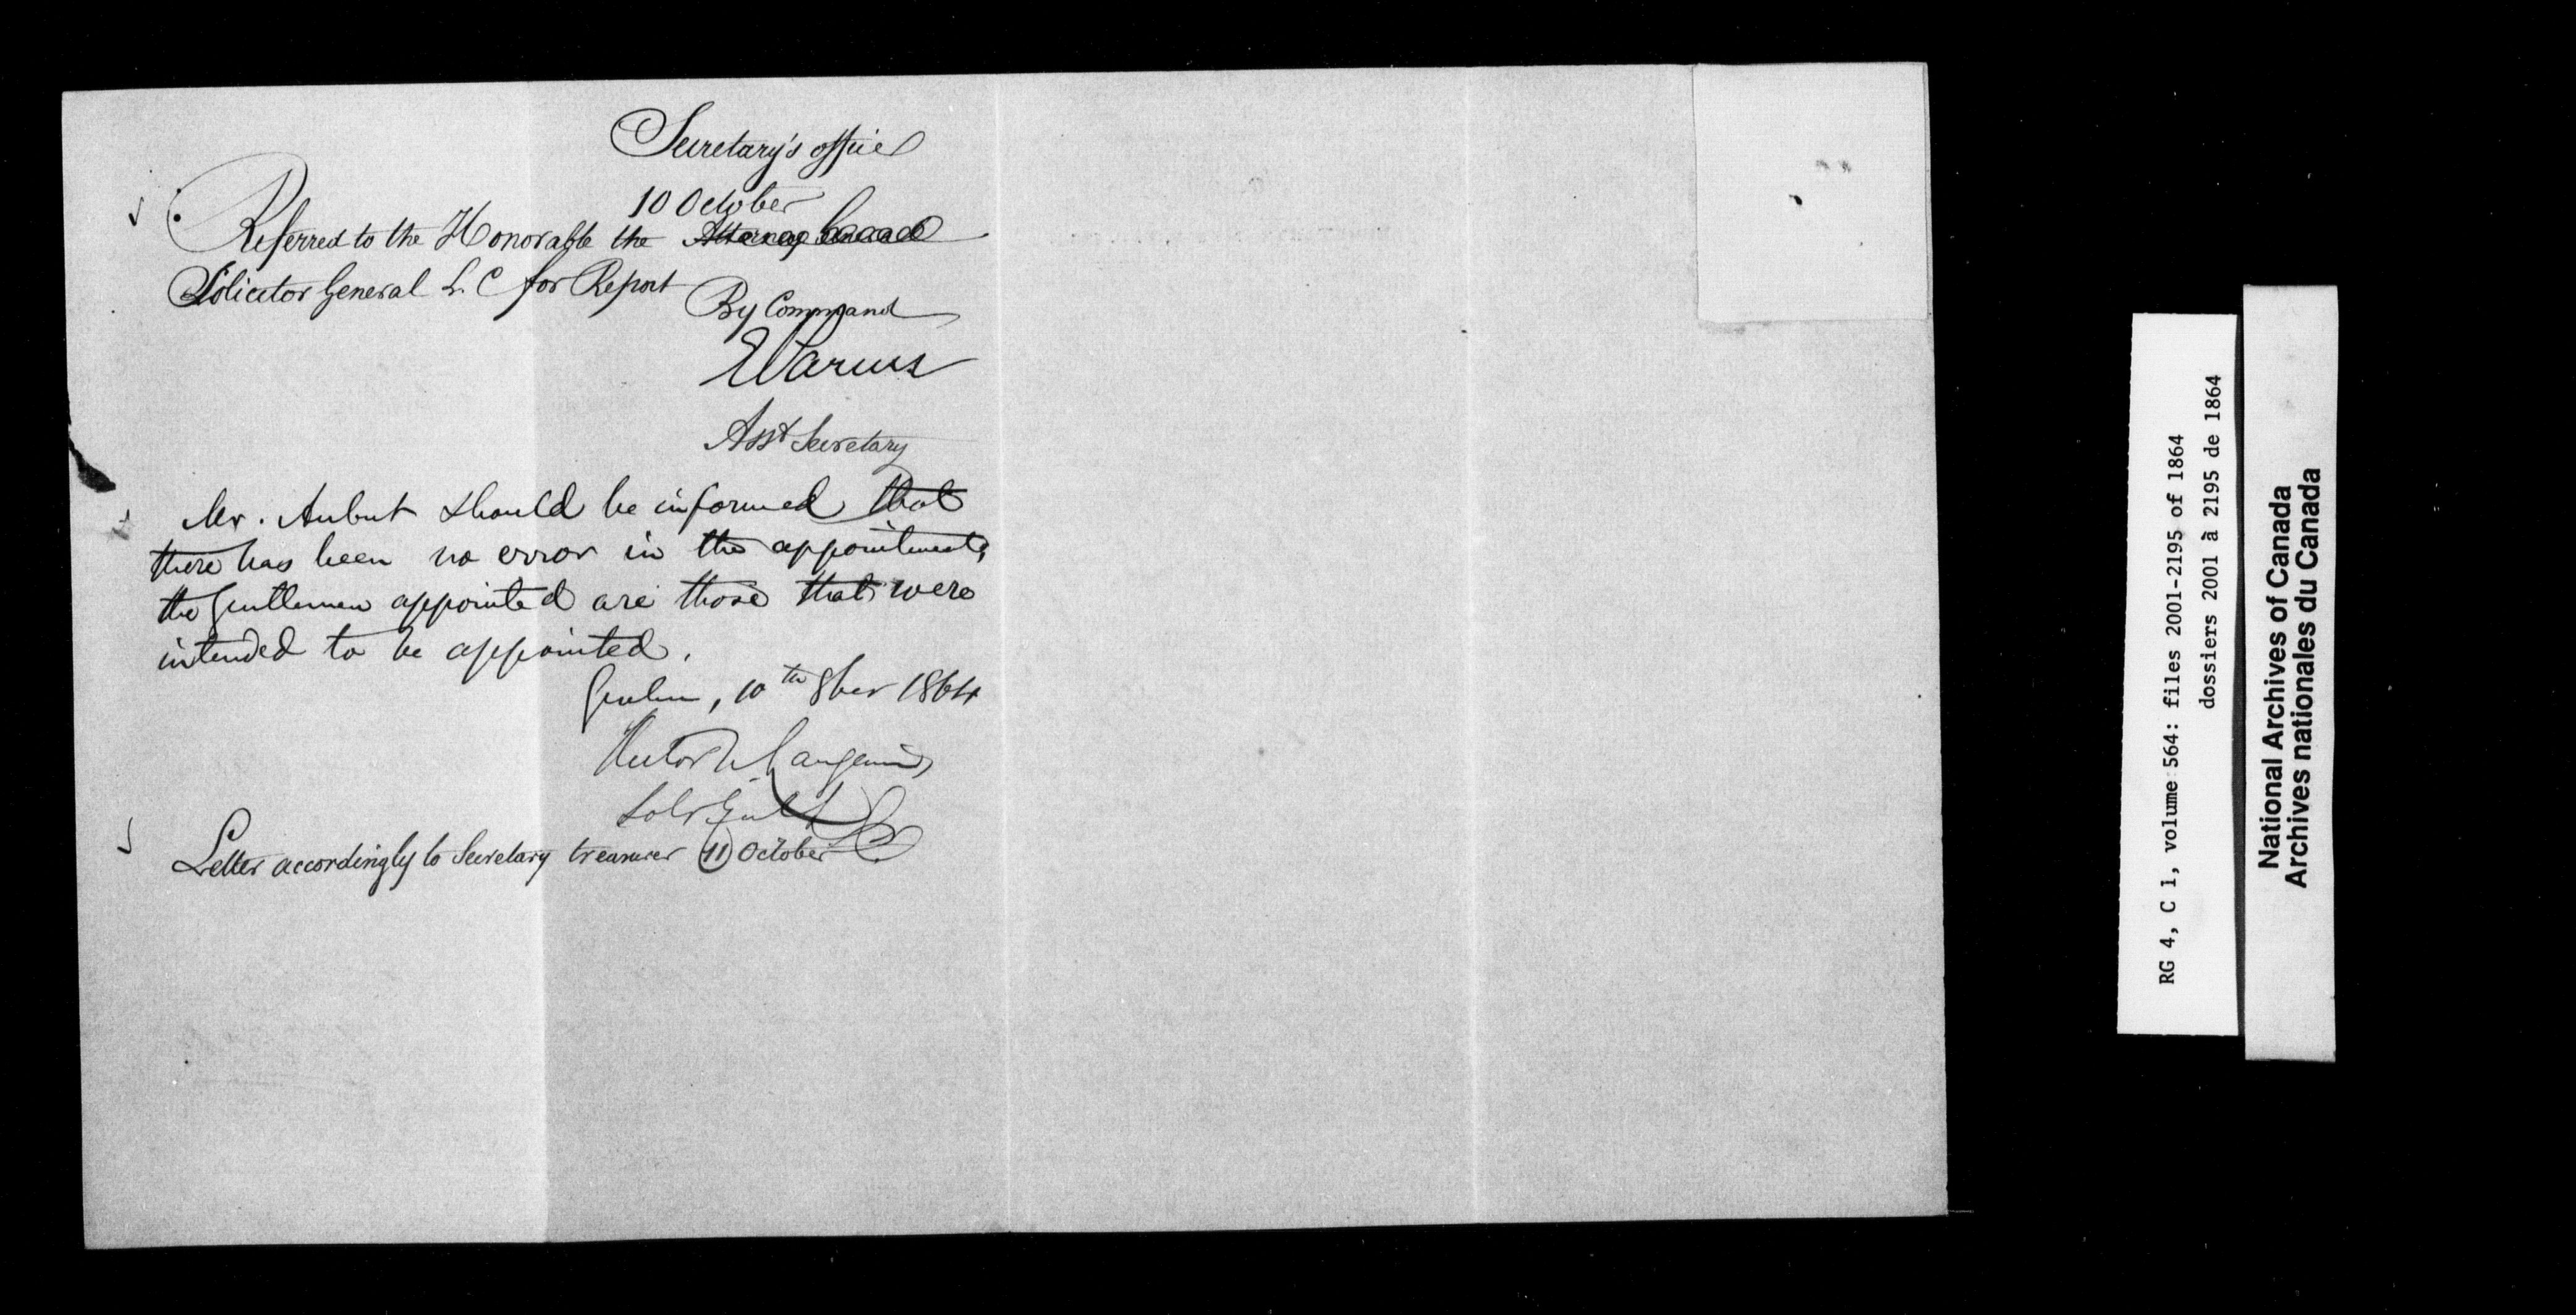 Secretary's office
10 October
Referred to the Honorable the Attorney General
Solicitor General L. C for Report
By Command
E Parent
Asst Secretary
Mr. Aubut should be informed that
there has been no error in the appointments,
the Gentlemen appointed are those that were
intended to be appointed.
Quebec, 10th 8ber 1864
Hector L. Langevin,
Solr Genl L C
Letter accordingly to Secretary treasurer 11 October
RG 4, C 1, volume 564: files 2001-2195 of 1864
dossiers 2001 à 2195 de 1864
National Archives of Canada
Archives nationales du Canada